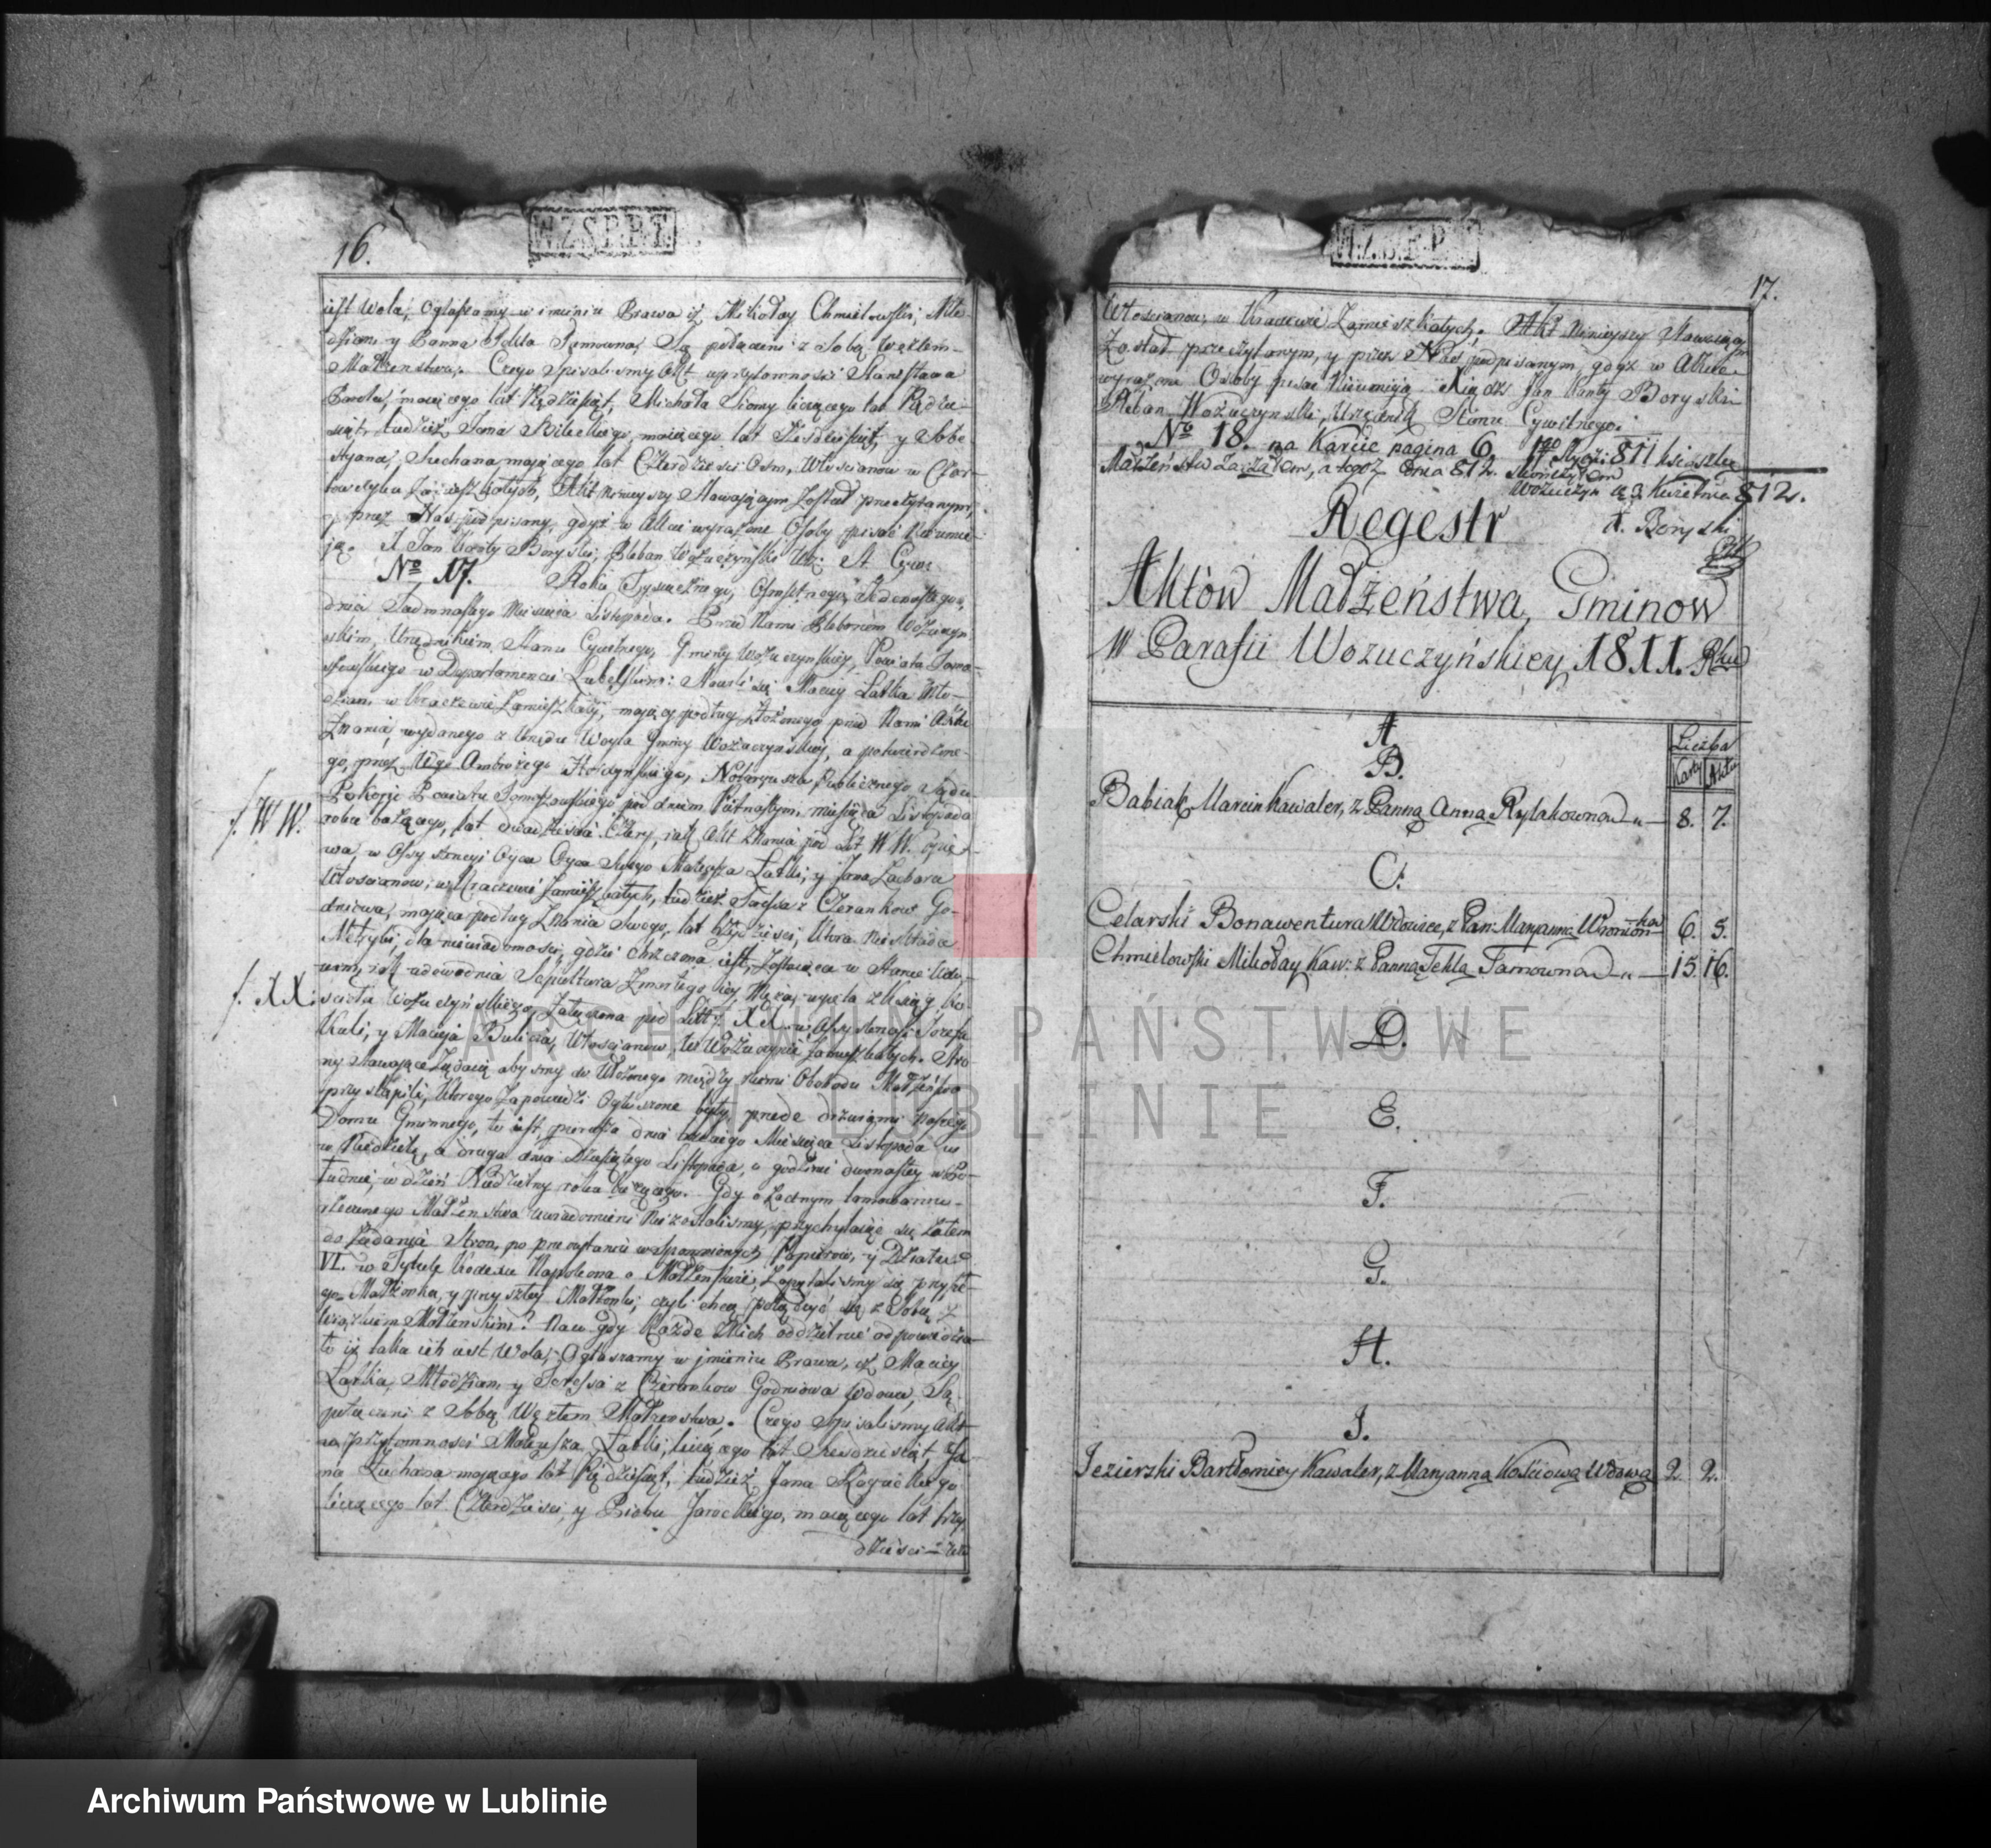 16.
W.Z.S.P.P.T.
iest Wola; Ogłaszamy w imieniu Prawa iż Mikołay Chmielowski, Mło-
dzian, y Panna Tekla Tamowna, Są połączeni z Sobą Węzłem
Małżenstwa. Czego Spisalismy Akt w przytomności Stanisława
mającego lat Pięćdziesiąt, Michała Siomy liczącego lat Pięćdzie-
siąt, tudzież Jana Bileckiego, mającego lat Sześćdziesiąt, y Seba-
styana Suchana, mającego lat Czterdzieści Osm, Włościanow w
zamieszkałych, Akt Ninieyszy Stawającym Został przeczytanym,
y przez Nas podpisany, gdyż w Akcie wyrażone Osoby pisać Nieumie-
ją. X Jan Kanty Boryski, Pleban Wożuczyński Urz: St. Cywi:
No 17. Roku Tysiącznego, Osmsetnego, Jedenastego,
dnia Siedmnastego Miesiąca Listopada. Przed Nami Plebanem Wożuczyń-
skim, Urzędnikiem Stanu Cywilnego, Gminy Wożuczynskiey, Powiatu Toma-
szowskiego w Departamencie Lubelskim: Stawił się Maciey Łatka Mło-
dzian, w Kraczewie Zamieszkały, mający podług złożonego przed Nami Aktu
Znania, wydanego z Urzędu Woyta Gminy Wożuczyńskiey, a potwierdzone-
go, przez Wgo Ambrożego Notaryusza Publicznego Sądu
Pokoju Powiatu Tomaszowskiego pod dniem Piętnastym, miesiąca Listopada
f. W W.
roku bieżącego, lat dwadzieścia Cztery, iak Akt Znania pod Lit W W. opie-
wa, w Assystencyi Oyca Oyca Swego Mateusza Łatki, y Jana Zachara
Włościanow, w Kraczewie Zamieszkałych, tudzież Teressa z Czerankow Go-
dniowa, mająca podług Znania Swego, lat trzydzieści, ktora nieskłada
Metryki, dla niewiadomości, gdzie chrzczona iest, Zostaiąca w Stanie Wdo-
wim, iak udowodnia Sepultura Zmarłego Jey Męża, wyięta z Ksiąg Ko-
f. XX:
ścioła Wożuczyńskiego, Załączona pod Litt: XX. w Assystencyi Jozefa
Kuli, y Macieja Bulicza, Włościanow, w Wożuczynie Zamieszkałych. Stro-
ny Stawające Żądaią abyśmy do Ułożonego między niemi Obchodu Małżeństwa
przystąpili, Ktorego Zapowiedzi Ogłoszone były, przede drzwiami naszego
Domu Gminnego, to iest, pierwsza dnia trzeciego Miesiąca Listopada w
w Niedzielę, a druga dnia Dziesiątego Listopada, o godzinie dwonastey w Po-
łudnie, w dzień Niedzielny roku bieżącego. Gdy o żadnym tamowaniu
rzeczonego Małżenstwa uwiadomieni Niezostaliśmy, przychylaiąc się Zatem
do Żądania Stron, po przeczytaniu wspomnionych Papierow, y Działu
VI. w Tytule Kodexu Napoleona o Małżeństwie, Zapytaliśmy się przyszłe-
go Małżonka, y przyszłey Małżonki, czyli chcą połączyć się z Sobą
Związkiem Małżenskim? Na co gdy Każde z Nich oddzielnie odpowiedzia-
ło iż taka ich iest Wola; Ogłaszamy w imieniu Prawa, iż Maciey
Łatka, Młodzian, y Teressa z Czerankow Godniowa Wdowa, Są
połączeni z Sobą Węzłem Małżenstwa. Czego Spisalismy Akt
w przytomności Mateusza Łatki, liczącego lat Sześćdziesiąt, Ja-
na Zuchara mającego lat Pięćdziesiąt, tudzież Jana
liczącego lat Czterdzieści, y Piotra Jarockiego, mającego lat trzy
dzieści
17.
W.Z.S.P.P.
Włościanow, w Kraczewie Zamieszkałych. Akt Ninieyszy Stawiącym
Został przeczytanym, y przez Nas podpisanym, gdyż w Akcie
wyrażone Osoby pisać Nieumieją. Xiądz Jan Kanty Boryski
Pleban Wożuczynski, Urzędnik Stanu Cywilnego.
No 18. na Karcie pagina 6. 1go Stycz: 811 książkę
Małżeństw zacząłem, a tegoż dnia 812. skończyłem
Wożuczyn d. 2 Kwietnia 812.
X. Boryski
Regestr
Aktów Małżeństwa, Gminow
W Parafii Wozuczyńskiey 1811. Rku
Liczba
Karty Aktu
A
B.
Babiak Marcin Kawaler, z Panną Anną Rylakowną 8. 7.
C.
Celarski Bonawentura Wdowiec, z Pan: Maryanną 6. 5.
Chmielowski Mikołay Kaw: z Panną Teklą Tamowną 15. 16.
D.
E.
F.
G.
H.
I.
Jezierski Bartłomiey Kawaler, z Maryanną Kościową Wdową 2 2.
ARCHIWUM PAŃSTWOWE
W LUBLINIE
Archiwum Państwowe w Lublinie